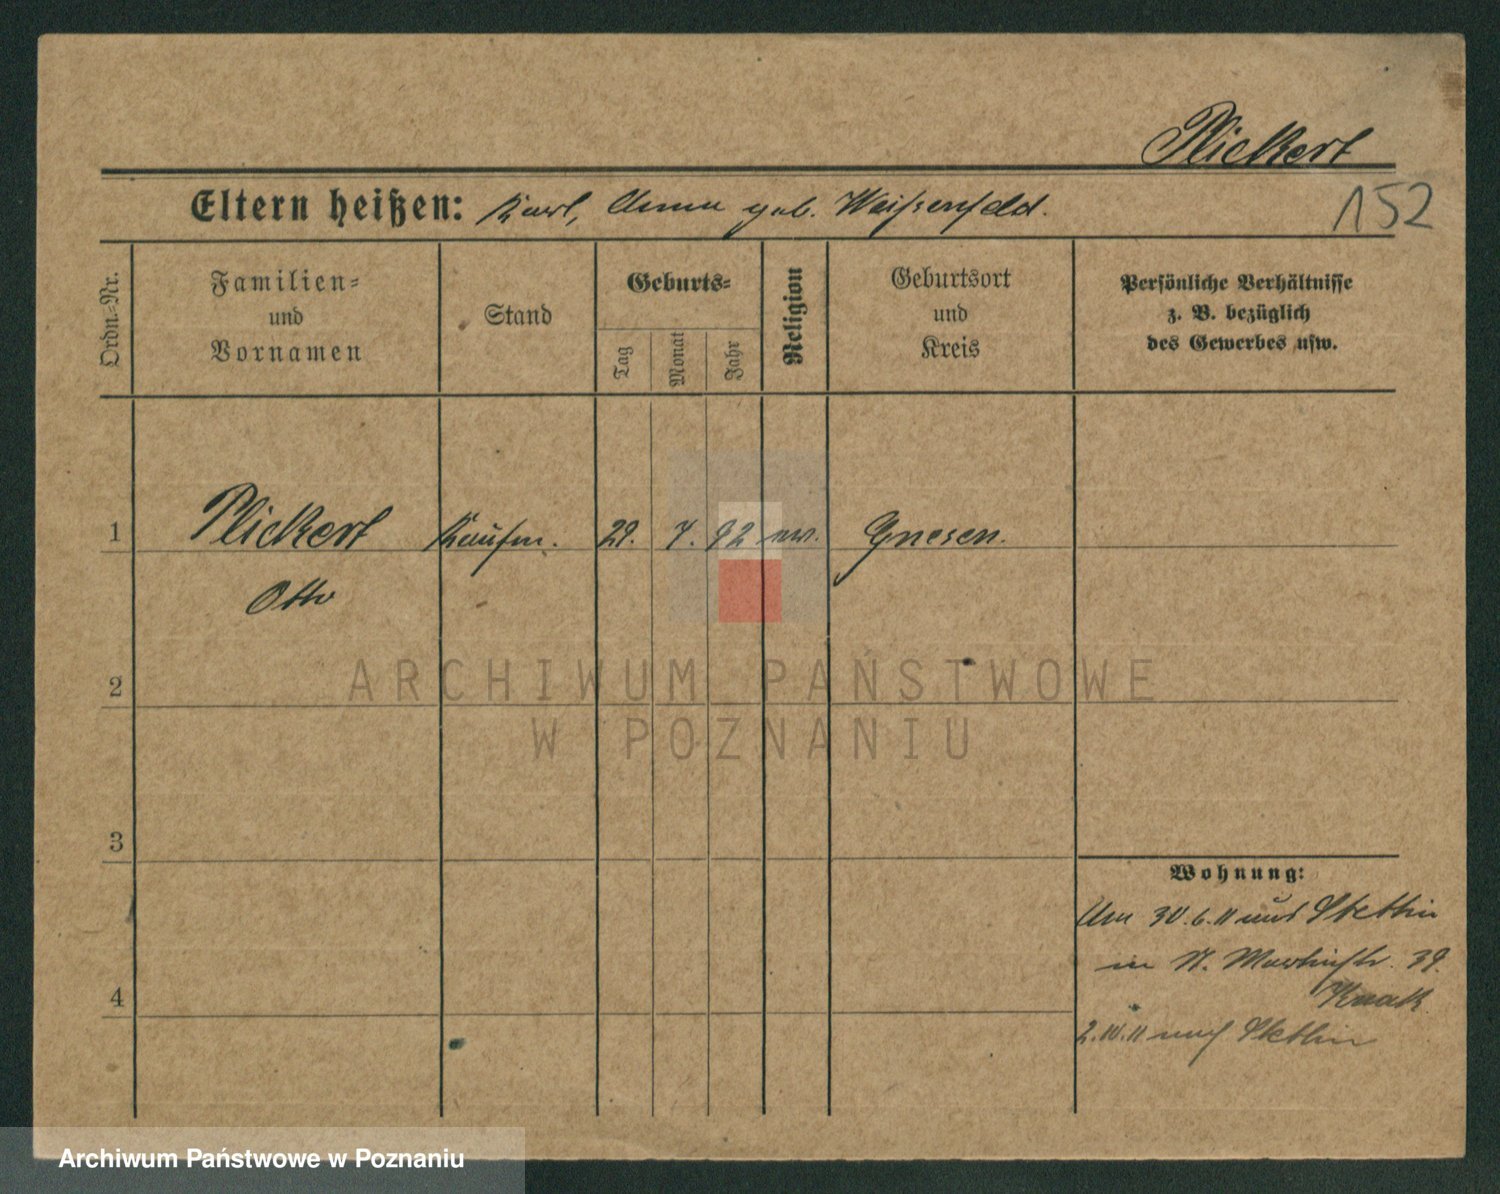 Plickert
Eltern heißen: Karl, Anna geb. Weißenfeld.
152
Ordn.-Nr.
Familien-
und
Vornamen
Stand
Geburts-
Tag
Monat
Jahr
Religion
Geburtsort
und
Kreis
Persönliche Verhältnisse
z. B. bezüglich
des Gewerbes usw.
1 Plickert Kaufm. 29. 7. 92 ev. Gnesen.
Otto
2
3
4
Wohnung:
Am 30.6.11 aus Stettin
in St. Martinstr. 39.
Knak
2. 10. 11 nach Stettin
ARCHIWUM PAŃSTWOWE
W POZNANIU
Archiwum Państwowe w Poznaniu